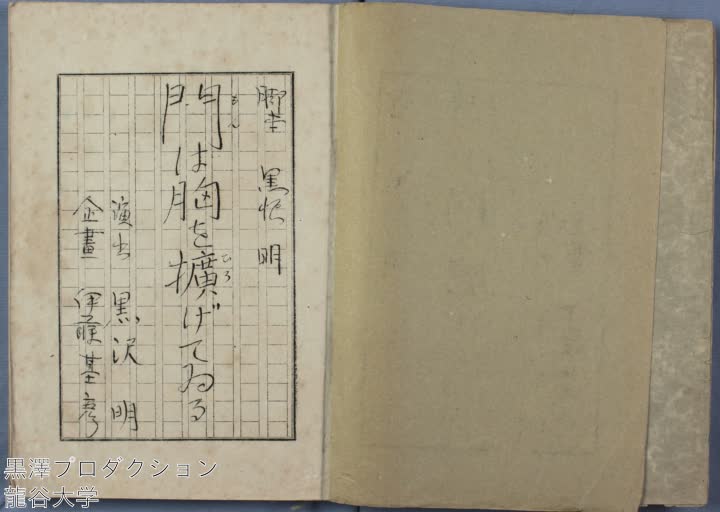 脚本 黒沢 明
門は胸を擴げてゐる
もん
ひろ
演出 黒沢 明
企畫 伊藤基彦
黒澤プロダクション
龍谷大学